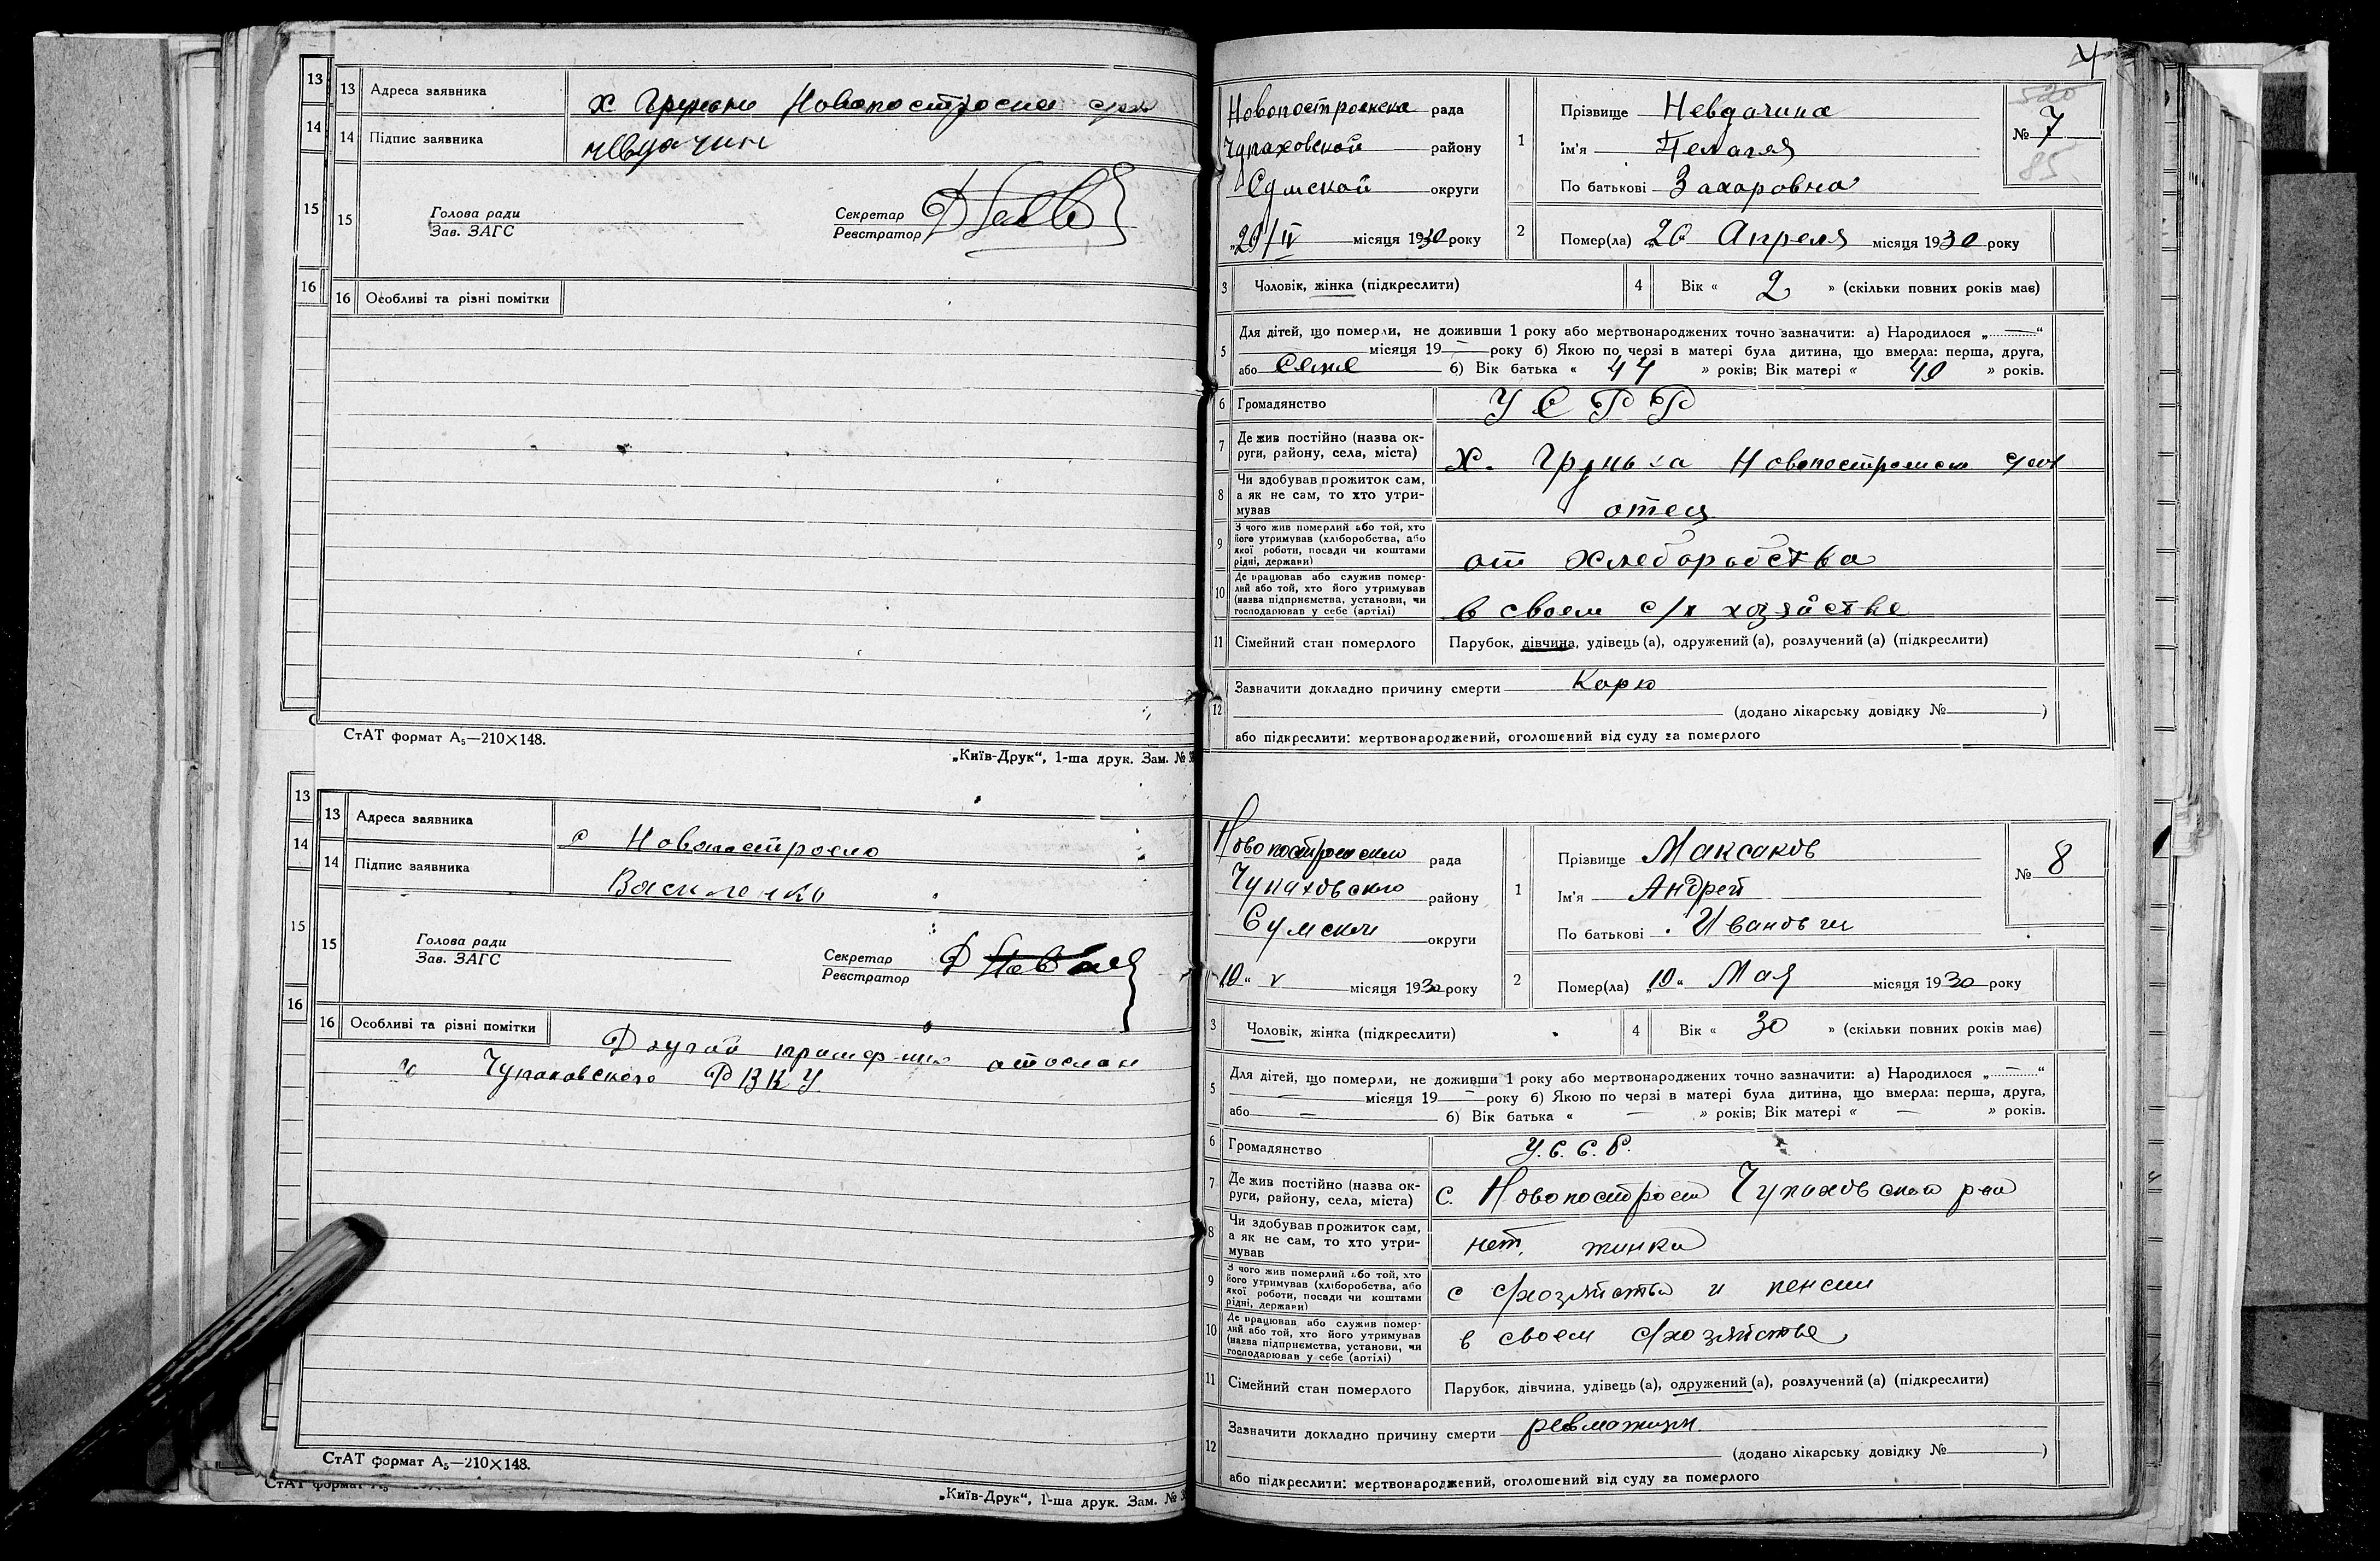 13
14
15
16
13 Адреса заявника х Грунька Новопостроєна
14 Підпис заявника Невдачин
15
Голова ради
Зав. ЗАГС
Секретар
Реєстратор
16 Особливі та різні помітки
СтАТ формат А₅—210×148.
„Київ-Друк“, 1-ша друк. Зам. №
13
14
15
16
13 Адреса заявника с Новопостроено
14 Підпис заявника Василенко
15
Голова ради
Зав. ЗАГС
Секретар
Реєстратор
16 Особливі та різні помітки
отослан
Чупаховского РВКУ
СтАТ формат А₅—210×148.
СтАТ формат А₅
„Київ-Друк“, 1-ша друк. Зам. №
4
520
Новопостроенска рада
Чупаховской району
Сумской округи
„20/IV місяця 1930 року
1
Прізвище Невдачина
ім'я Пелагея
По батькові Захаровна
№ 7
85
2 Помер(ла) 20 Апреля місяця 1930 року
3 Чоловік, жінка (підкреслити)
4 Вік « 2 » (скільки повних років має)
5 Для дітей, що померли, не доживши 1 року або мертвонароджених точно зазначити: а) Народилося „ — “
— місяця 19 — року б) Якою по черзі в матері була дитина, що вмерла: перша, друга,
або 6) Вік батька « 44 » років; Вік матері « 40 » років.
6 Громадянство У С Р Р
7 Де жив постійно (назва округи, району, села, міста) х. Грунька Новопостроенск
8 Чи здобував прожиток сам, а як не сам, то хто утримував отец
9 З чого жив померлий або той, хто його утримував (хліборобства, або якої роботи, посади чи коштами рідні, держави) от хлеборобства
10 Де працював або служив померлий або той, хто його утримував (назва підприємства, установи, чи господарював у себе (артілі) в своем с/х хозяйстве
11 Сімейний стан померлого Парубок, дівчина, удівець (а), одружений (а), розлучений (а) (підкреслити)
12 Зазначити докладно причину смерти Корю
(додано лікарську довідку № )
або підкреслити: мертвонароджений, оголошений від суду за померлого
Новопостроенского рада
Чупаховского району
Сумской округи
„10“ V місяця 1930 року
1
Прізвище Максаков
Ім'я Андрей
По батькові Иванович
№ 8
2 Помер(ла) „10“ Мая місяця 1930 року
3 Чоловік, жінка (підкреслити)
4 Вік « 30 » (скільки повних років має)
5 Для дітей, що померли, не доживши 1 року або мертвонароджених точно зазначити: а) Народилося „ — “
— місяця 19 — року б) Якою по черзі в матері була дитина, що вмерла: перша, друга,
або — 6) Вік батька « — » років; Вік матері « — » років.
6 Громадянство У.С.С.Р.
7 Де жив постійно (назва округи, району, села, міста) с. Новопостроен Чупаховской р-на
8 Чи здобував прожиток сам, а як не сам, то хто утримував нет, жинка
9 З чого жив померлий або той, хто його утримував (хліборобства, або якої роботи, посади чи коштами рідні, держави) с с/хозяйства и пенсии
10 Де працював або служив померлий або той, хто його утримував (назва підприємства, установи, чи господарював у себе (артілі) в своем с/хозяйстве
11 Сімейний стан померлого Парубок, дівчина, удівець (а), одружений (а), розлучений (а) (підкреслити)
12 Зазначити докладно причину смерти ревматизм
(додано лікарську довідку № )
або підкреслити: мертвонароджений, оголошений від суду за померлого